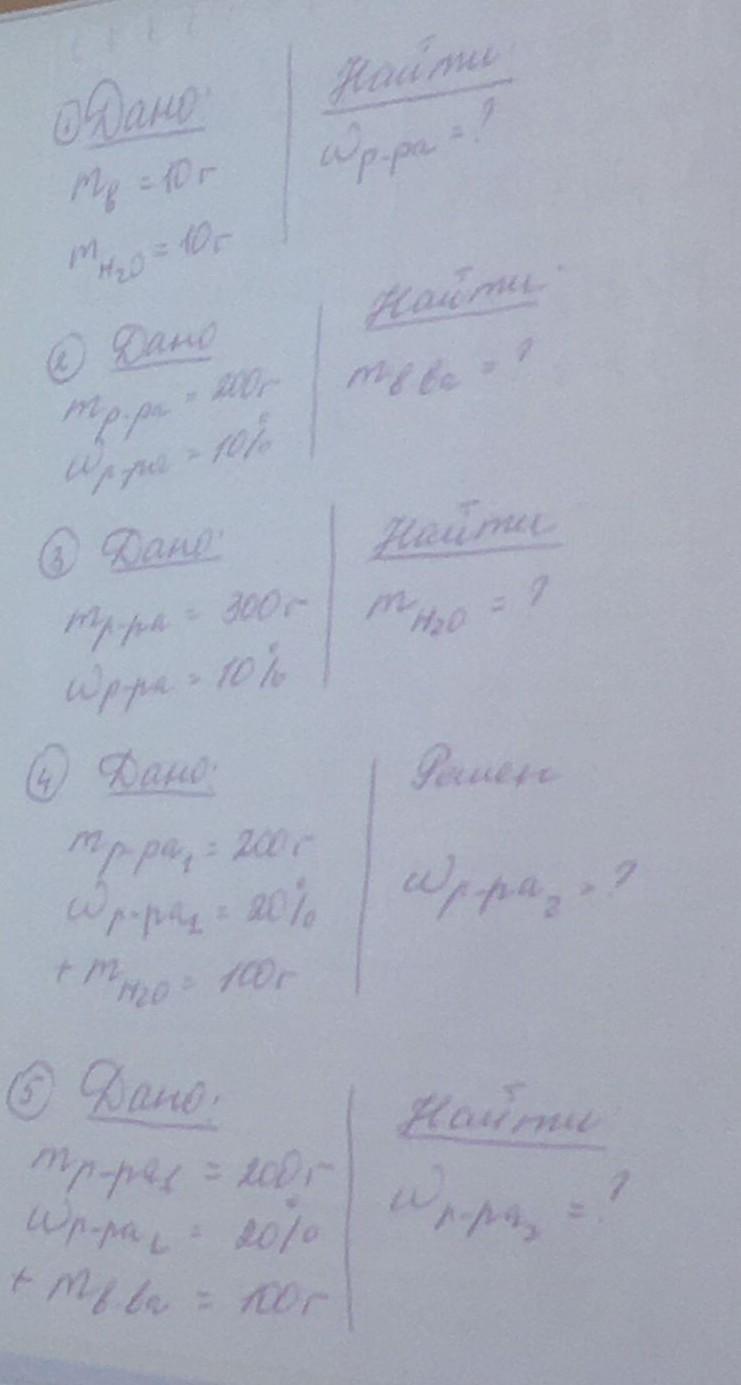 ① Дано:
m_в = 10г
m_H₂O = 10г
Найти
ω_р-ра = ?
② Дано
m_р-ра = 200г
ω_р-ра = 10%
Найти:
m_в-ва = ?
③ Дано:
m_р-ра = 300г
ω_р-ра = 10%
Найти
m_H₂O = ?
④ Дано:
m_р-ра₁ = 200г
ω_р-ра₁ = 20%
+ m_H₂O = 100г
Решен
ω_р-ра₂ = ?
⑤ Дано:
m_р-ра₁ = 200г
ω_р-ра₁ = 20%
+ m_в-ва = 100г
Найти
ω_р-ра₂ = ?